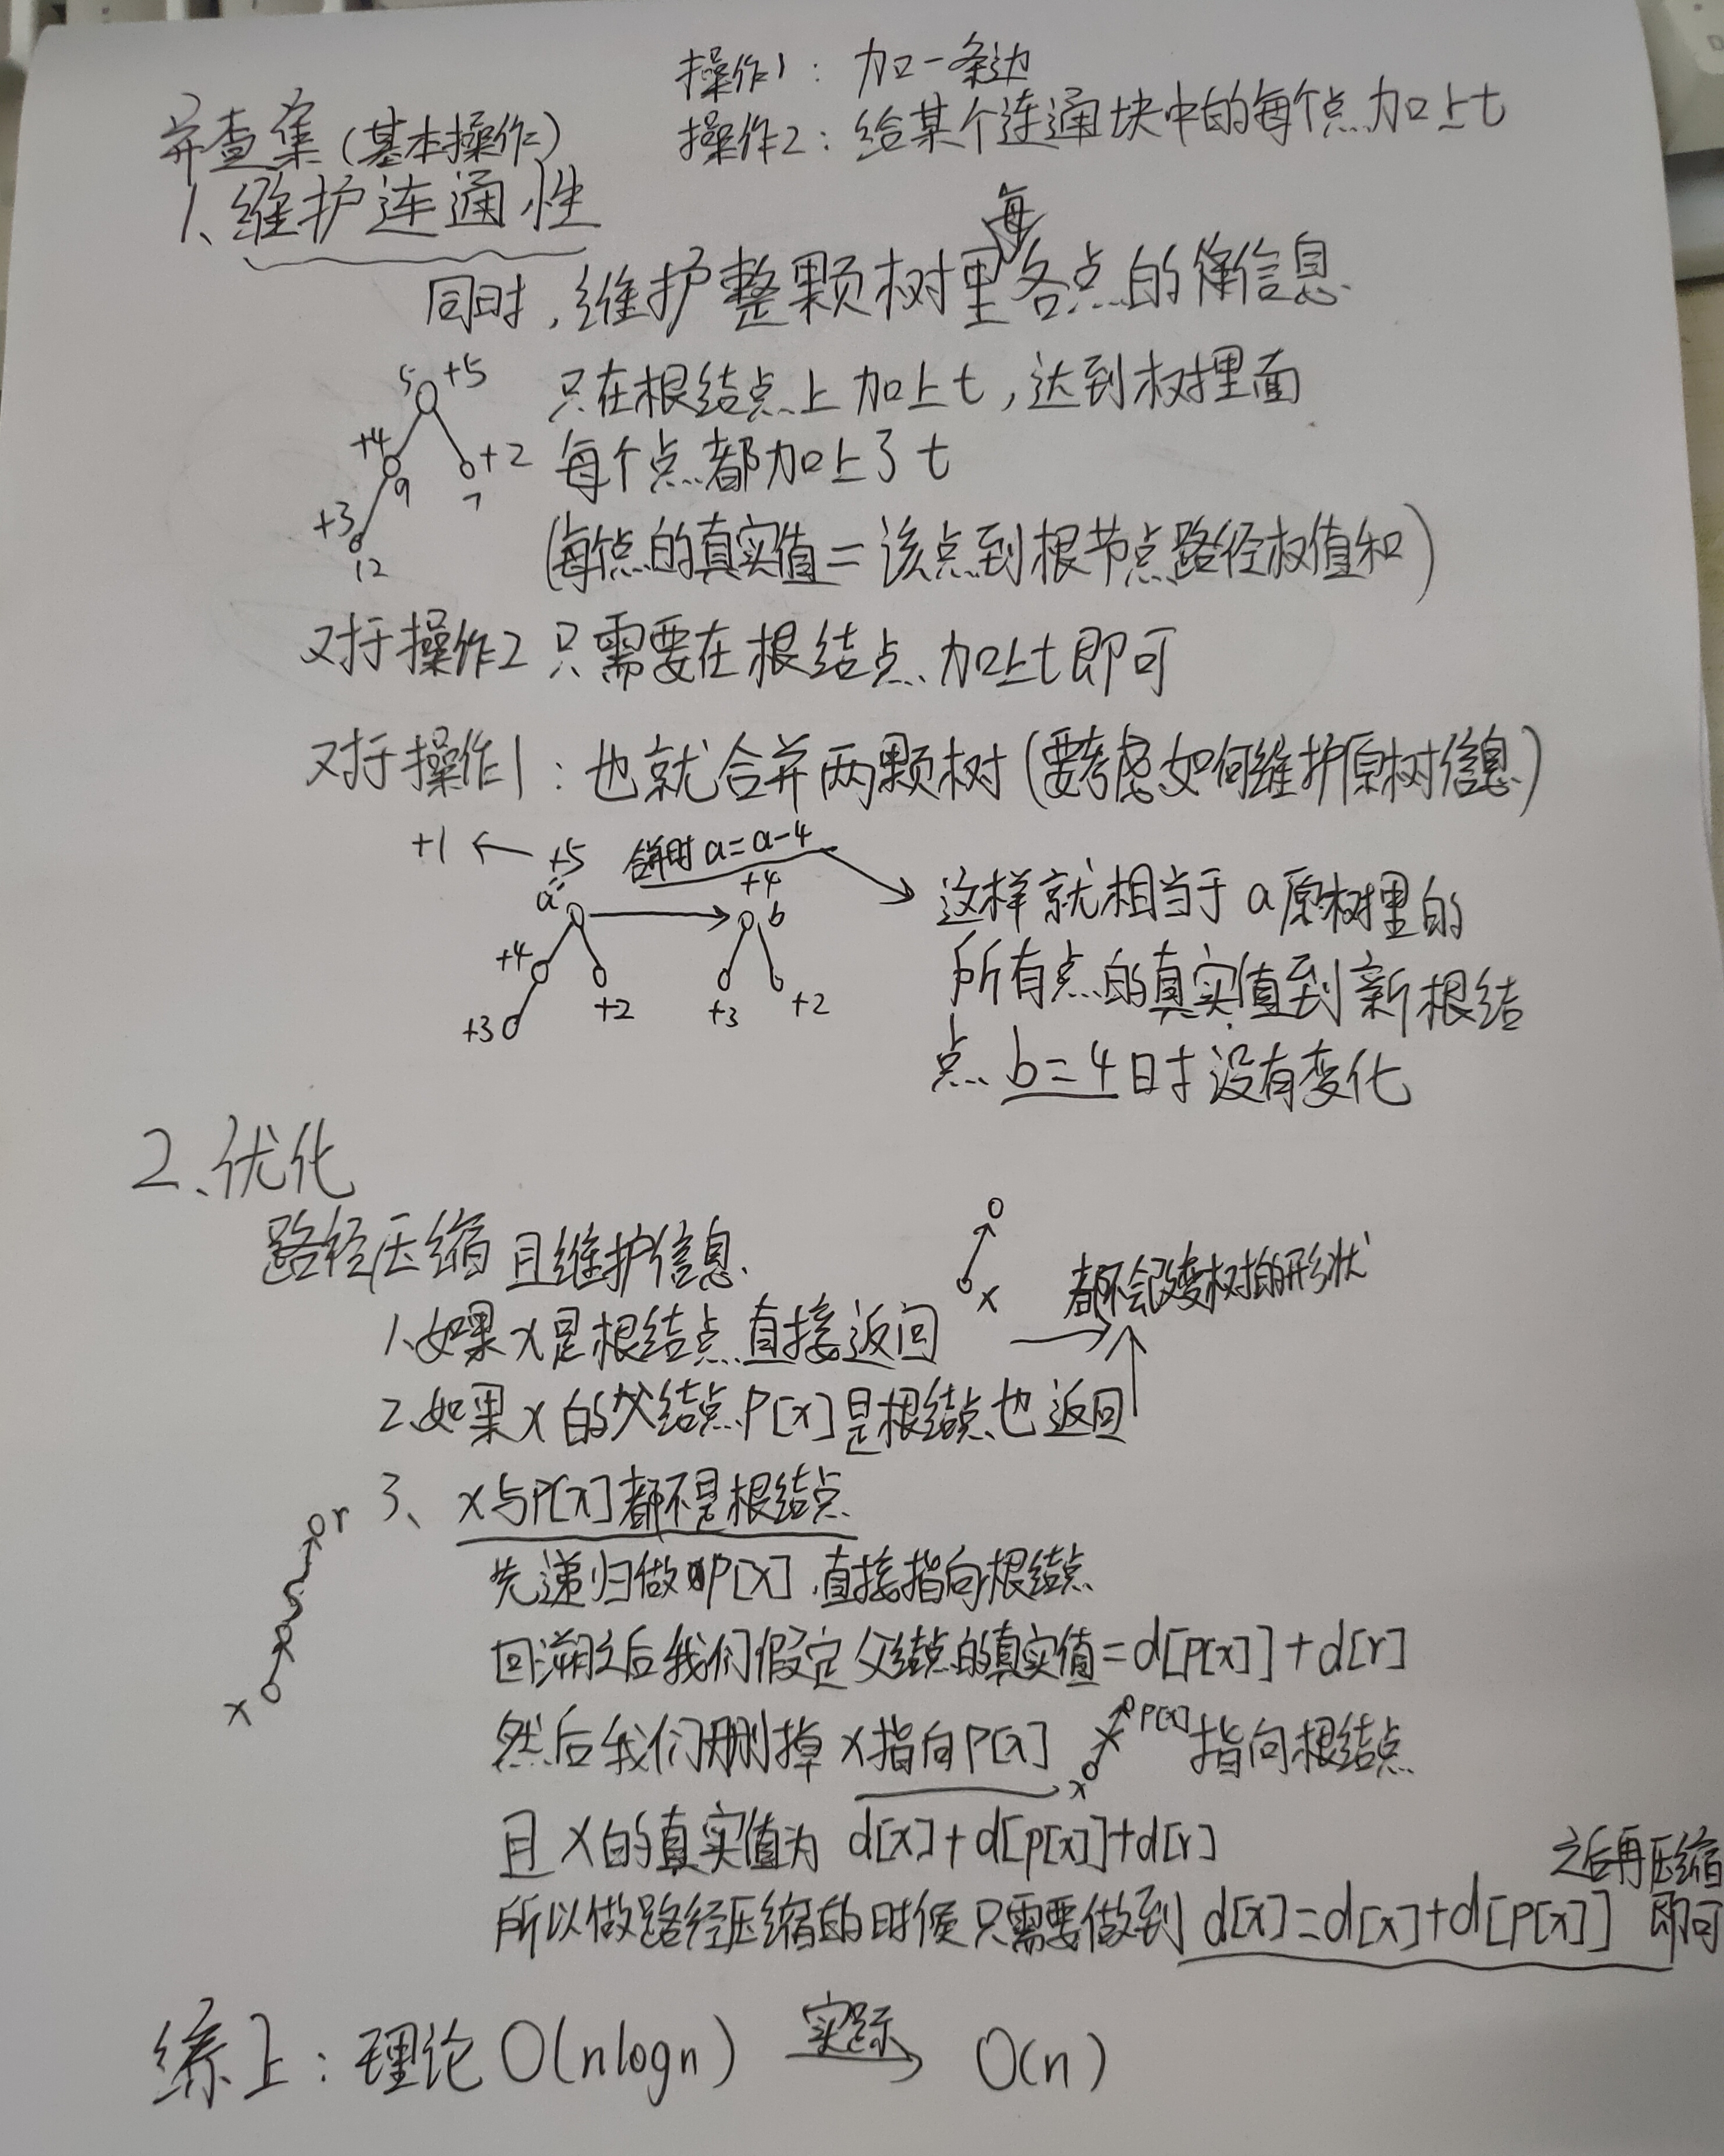 操作1：加一条边
并查集(基本操作)
操作2：给某个连通块中的每个点加上t
1、维护连通性
每
同时,维护整颗树里各点的信息
5 +5
只在根结点上加上t,达到树里面
+4
9
+2
7
每个点都加上了t
+3
12
(每个点的真实值=该点到根节点路径权值和)
对于操作2只需要在根结点加上t即可
对于操作1：也就合并两颗树(要考虑如何维护原树信息)
+1 ← +5
合并时a=a-4
a
+4
b
这样就相当于a原树里的
+4
+3
+2
+3
+2
所有点的真实值到新根结
点b=4时没有变化
2、优化
路径压缩且维护信息
x
都不会改变树的形状
1、如果x是根结点直接返回
2、如果x的父结点P[x]是根结点也返回
3、x与P[x]都不是根结点
r
x
先递归做P[x],直接指向根结点
回溯之后我们假定父结点的真实值=d[p[x]]+d[r]
然后我们删掉x指向P[x]
P[x]
x
指向根结点
且x的真实值为d[x]+d[p[x]]+d[r]
之后再压缩
所以做路径压缩的时候只需要做到d[x]=d[x]+d[p[x]] 即可
综上：理论O(nlogn) 实际→ O(n)